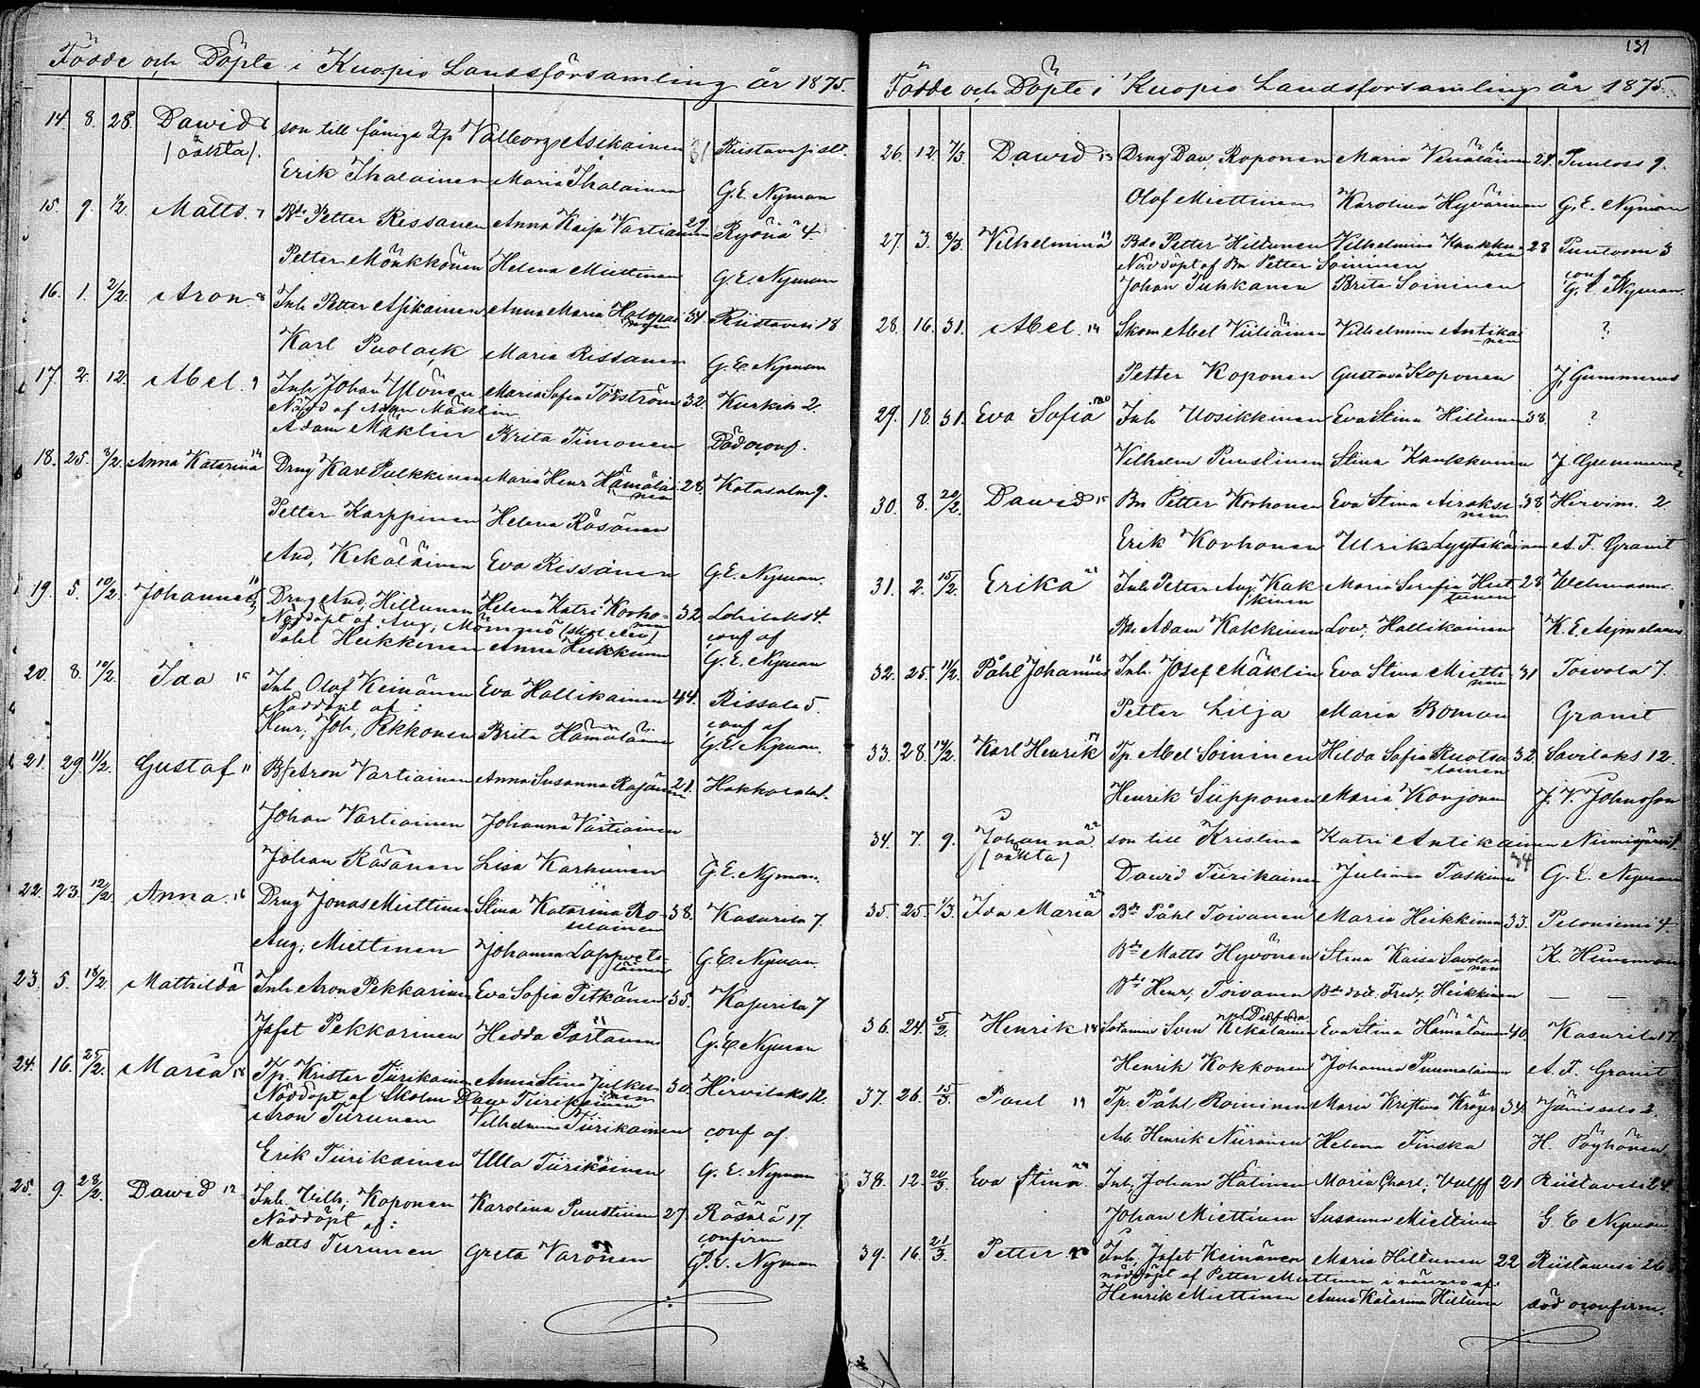 Födde och Döpte i Kuopio Landsförsamling år 1875.
14 8. 28. Dawid son till Valborg Asikainen 31
(oäkta). Erik Ihalainen Maria Ihalainen G.E. Nyman
15. 9. 1/2. Matts Petter Rissanen Anna Kaija Vartiainen 29. Ryönä 4.
Petter Mönkkönen Helena Miettinen G.E. Nyman
16. 1. 2/2. Aron Inh Petter Asikainen Anna Maria Halopainen 34. Riistavesi 18
Karl Puolack Maria Rissanen G.E. Nyman
17. 2. 12. Abel Inh Johan Ylönen Maria Sofia 32. Kurkih 2.
Nödd af Adam Mäklin
Adam Mäklin Brita Timonen Död oconf.
18. 25. 8/2. Anna Katarina Drng Karl Pulkkinen Maria Henr Hämäläinen 28. Katasalm 9.
Petter Karppinen Helena Räsänen
And, Kekäläinen Eva Rissanen G.E. Nyman.
19. 5. 10/2. Johannes Drng And, Hiltunen Helena Katri Korhonen 32. Lohilaks 4.
Nöddöpt af Aug,
Påhl Heikkinen Anna Heikkinen conf af G.E. Nyman
20. 8. 10/2. Ida 15 Inh, Olof Keinänen Eva Hallikainen 44. Rissala 5.
Nöddöpt af:
Henr, Joh, Pekkonen Brita Hämäläinen conf af G.E. Nyman.
21. 29. 11/2. Gustaf 11 Aron Vartiainen Anna Susanna Räsänen 21.
Johan Vartiainen Johanna Vartiainen
Johan Räsänen Lisa Karhunen G.E. Nyman.
22. 23. 12/2. Anna. 16 Drng Jonas Miettinen Stina Katarina 38. Kasurila 7.
Aug, Miettinen Johanna Lappvetelainen G.E. Nyman.
23. 5. 18/2. Mathilda Inh Aron Pekkarinen Eva Sofia Pitkänen 35. Kasurila 7
Jafet Pekkarinen Hedda G.E. Nyman
24. 16. 25/2. Maria Tp, Krister Tiirikainen Anna Stina Julkunen 30. Hirvilaks 12.
Nöddöpt af Skolm Dawe Tiirikainen
Aron Turunen Vilhelmina Tiirikainen conf af
Erik Tiirikainen Ulla Tiirikainen G.E. Nyman
25. 9. 28/2. Dawid 12 Inh. Vilh, Koponen Karolina Puustinen 27 Räsälä 17
Nöddöpt af: confirm
Matts Turunen Greta Varonen G.E. Nyman
131
Födde och Döpte i Kuopio Landsforsamling år 1875.
26. 12. 7/3. Dawid 13 Drng Dav, Roponen Maria Venäläinen 24. 9.
Olof Miettinen Karolina Hyvärinen G.E. Nyman
27. 3. 8/3. Vilhelmina Bde Petter Hiltunen Vilhelmina Kaukkunen 28 3
Nöddöpt af Bn Petter Soininen
Johan Tuhkanen Brita Soininen conf af G.E. Nyman.
28. 16. 31. Abel. 14 Skom Abel Viiliäinen Vilhelmina Antikainen ?
Petter Koponen Gustava Koponen J, Gummerus
29. 18. 31. Eva Sofia Inh Uosikkinen Eva Stina Hiltunen 38. ?
Vilhelm Puustinen Stina Kaukkunen J. Gummerus
30. 8. 20/2. Dawid 15 Bn Petter Korhonen Eva Stina Airaksinen 38 Hirvim. 2
Erik Korhonen Ulrika Lyytikäinen A.F. Granit
31. 2. 15/2. Erika Inh Petter Aug, Kakkinen Maria Serafia Huttunen 28
Bde Adam Kakkinen Lov, Hallikainen K.E. Aejmelaeus
32. 25. 11/2. Påhl Johannes Inh. Josef Mäklin Eva Stina Miettinen 31 Toivola 7.
Petter Lilja Maria Boman Granit
33. 28. 14/2. Karl Henrik Tp, Abel Soininen Hilda Sofia Ruotsalainen 32 Savilaks 12.
Henrik Siipponen Maria Konjonen J.V. Johnsson
34. 7. 9. Johanna son till Kristina Katri Antikainen
(oäkta) Dawid Tiirikainen Julina Taskinen 34 G.E. Nyman
35. 25. 1/3. Ida Maria Bde Påhl Toivanen Maria Heikkinen 33. Peloniemi 4.
Bde Matts Hyvönen Stina Kaisa Savolainen K.
Bde Henr, Toivanen Bde dott. Fredr. Heikkinen — —
36. 24. 5/2. Henrik 14 Sven Kekäläinen Eva Stina Hämäläinen 40 Kasurila 17
Henrik Kokkonen Johanna Puumalainen A.F. Granit
37. 26. 15/3. Paul 19 Tp. Påhl Roininen Maria Kristina Kröger 34. Jänissalo 2.
Arb Henrik Niiranen Helena Finska H. Pöyhönen
38. 12. 20/3. Eva Stina Inh, Johan Hätinen Maria Charl, Vulff 21 Riistavesi 24
Johan Miettinen Susanna Miettinen G.E. Nyman
39. 16. 21/3. Petter Inh, Jafet Keinänen Maria Hiltunen 22 Riistavesi 26
nöddöpt af Petter Miettinen i närvaro af:
Henrik Miettinen Anna Katarina Hiltunen död oconfirm.